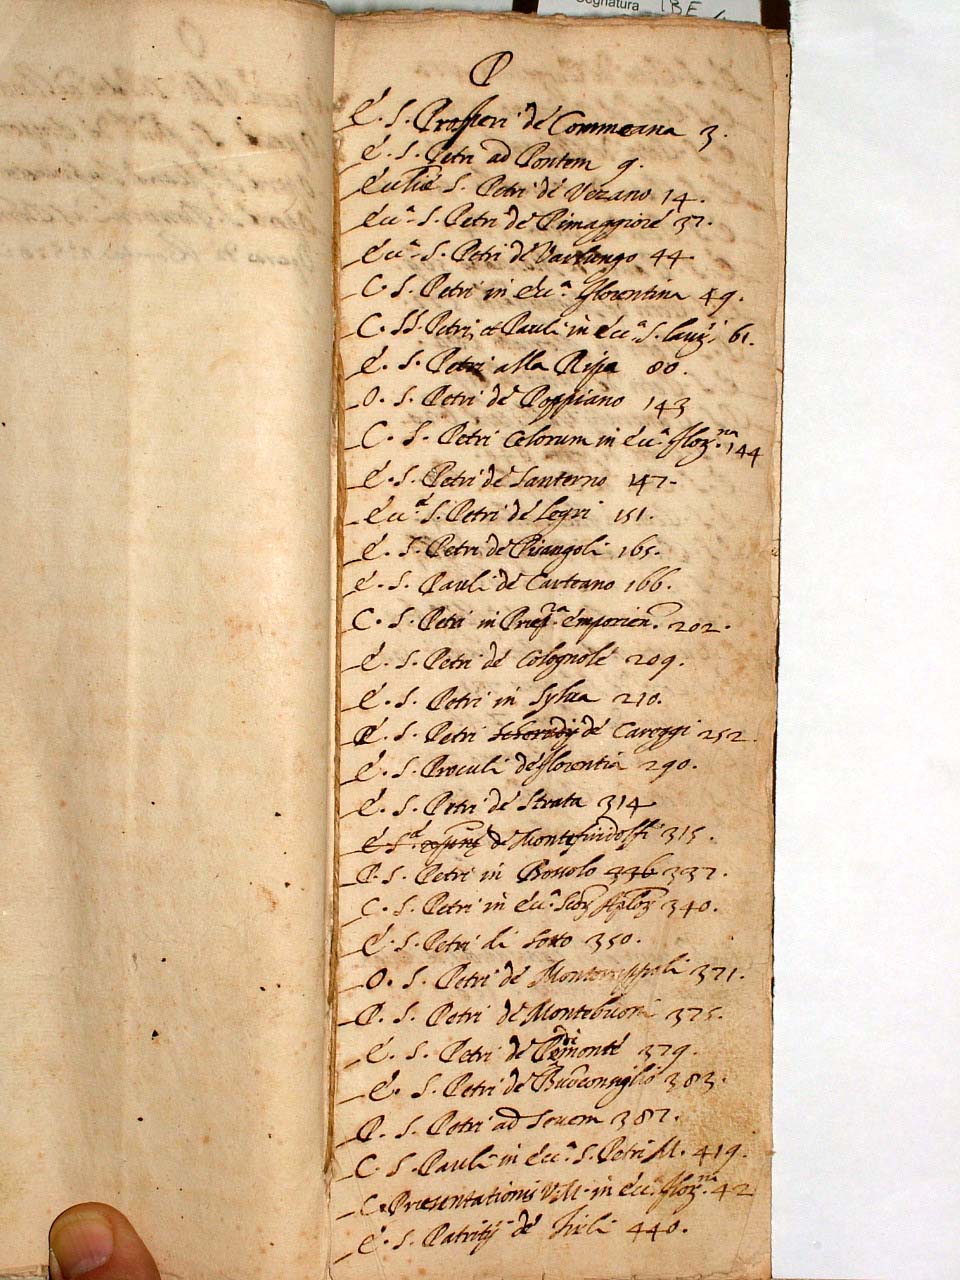 Segnatura IBE
P
E. S. Prosperi de Commeana 3.
E. S. Petri ad Pontem 9.
Eccliē S. Petri de Vezano 14.
Ecc.ª S. Petri de Pimaggiore 37.
Ecc.ª S. Petri de Varlungo 44
C. S. Petri in Ecc.ª florentina 49.
C. SS. Petri, et Pauli in Ecc.ª S. Laur. 61.
E. S. Petri alla Ripa 80.
O. S. Petri de Poppiano 143
C. S. Petri Celorum in Ecc.ª flor.na 144
E. S. Petri de Santerno 147.
Ecc.ª S. Petri de Legri 151.
E. S. Petri de Piuangoli 165.
E. S. Pauli de Carteano 166.
C. S. Petri in emporien. 202.
E. S. Petri de Colognole 209.
E. S. Petri in Sylua 210.
P. S. Petri de Careggi 252.
E. S. Proculi de florentia 290.
E. S. Petri de Strata 314
E S.ª de Montefiridolfi 315.
P. S. Petri in Bossolo 446 337.
C. S. Petri in Ecc.ª 340.
E. S. Petri di Sotto 350.
O. S. Petri de 371.
P. S. Petri de Montebuoni 375.
E. S. Petri de 379.
E. S. Petri de Buoconsiglio 383.
P. S. Petri ad Seuem 387.
C. S. Pauli in Ecc.ª S. Petri M. 419.
C. Presentationis V.M. in Ecc. flor.na 42
E. S. Patritij de Tirli 440.